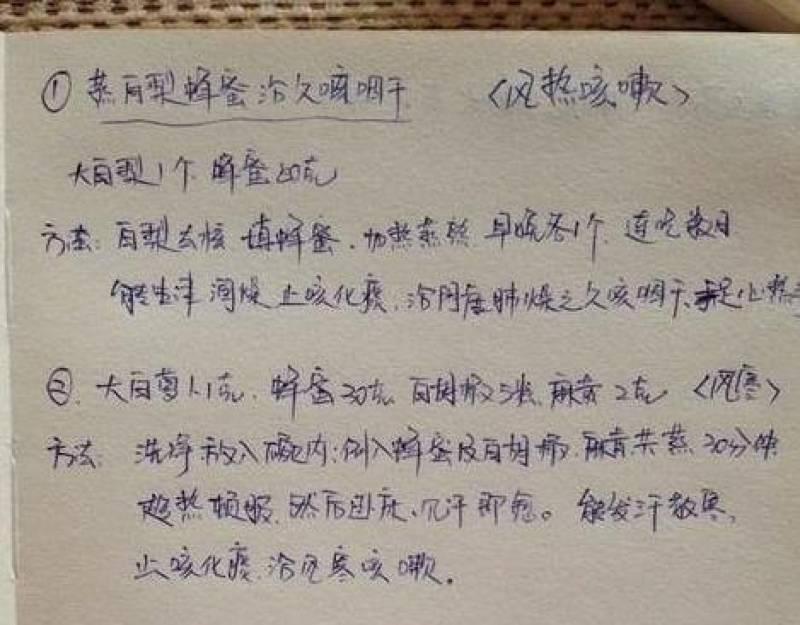 ① 蒸百梨蜂蜜治久咳咽干 〈风热咳嗽〉
大百梨1个 蜂蜜20克
方法:百梨去核 填蜂蜜,加热蒸熟 早晚各1个,连吃数日
能生津润燥止咳化痰,治阴虚肺燥之久咳咽干、手足心热
② 大白萝卜1克,蜂蜜30克 百胡椒5粒 麻黄2克 〈风寒〉
方法:洗净放入碗内;倒入蜂蜜及百胡椒,麻黄共蒸30分钟
趁热顿服,然后卧床,见汗即愈。能发汗散寒,
止咳化痰,治风寒咳嗽。